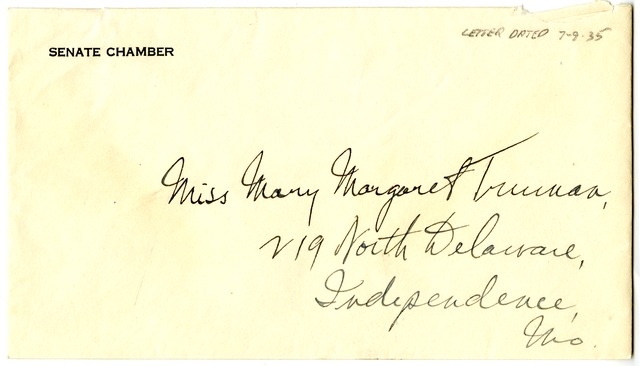 SENATE CHAMBER
LETTER DATED 7-9-35
Miss Mary Margaret Truman,
219 North Delaware,
Independence,
Mo.